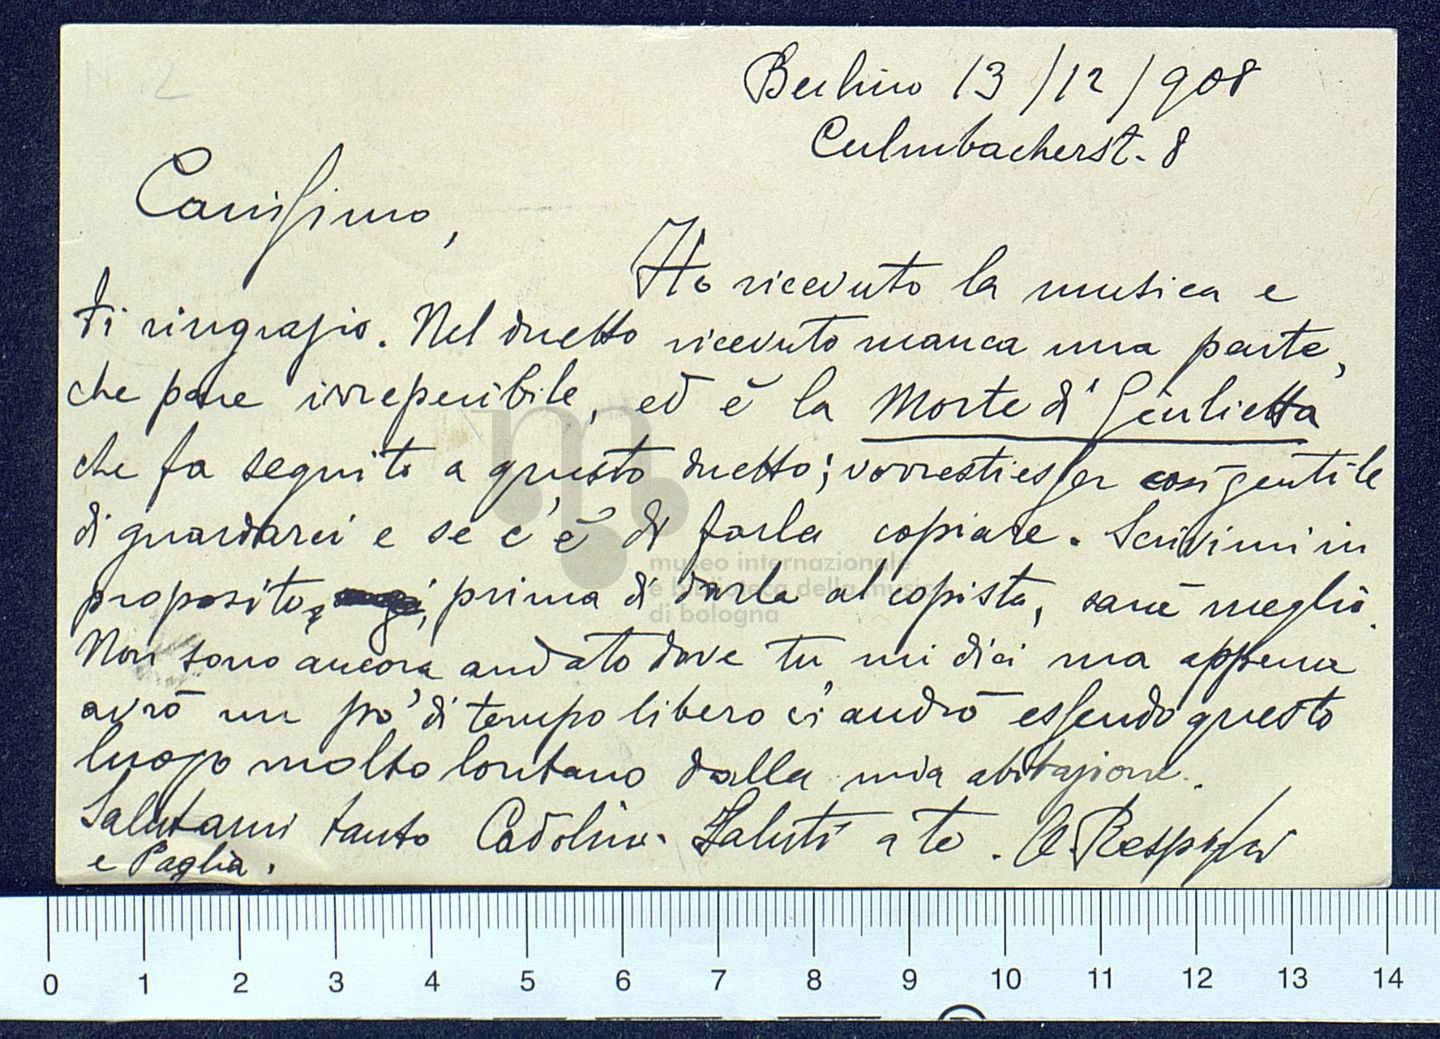 Berlino 13/12/908
Culmbacherst. 8
Carissimo,
Ho ricevuto la musica e
ti ringrazio. Nel duetto ricevuto manca una parte,
che pare irreperibile, ed è la Morte di Giulietta
che fa seguito a questo duetto; vorresti esser così gentile
di guardarci e se c'è di farla copiare. Scrivimi in
proposito, prima di darla al copista, sarà meglio.
Non sono ancora andato dove tu mi dici ma appena
avrò un po' di tempo libero ci andrò essendo questo
luogo molto lontano dalla mia abitazione.
Salutami tanto Cadolini. Saluti a te. O. Respighi
e Paglia.
museo internazionale
e biblioteca della musica
di bologna
0 1 2 3 4 5 6 7 8 9 10 11 12 13 14